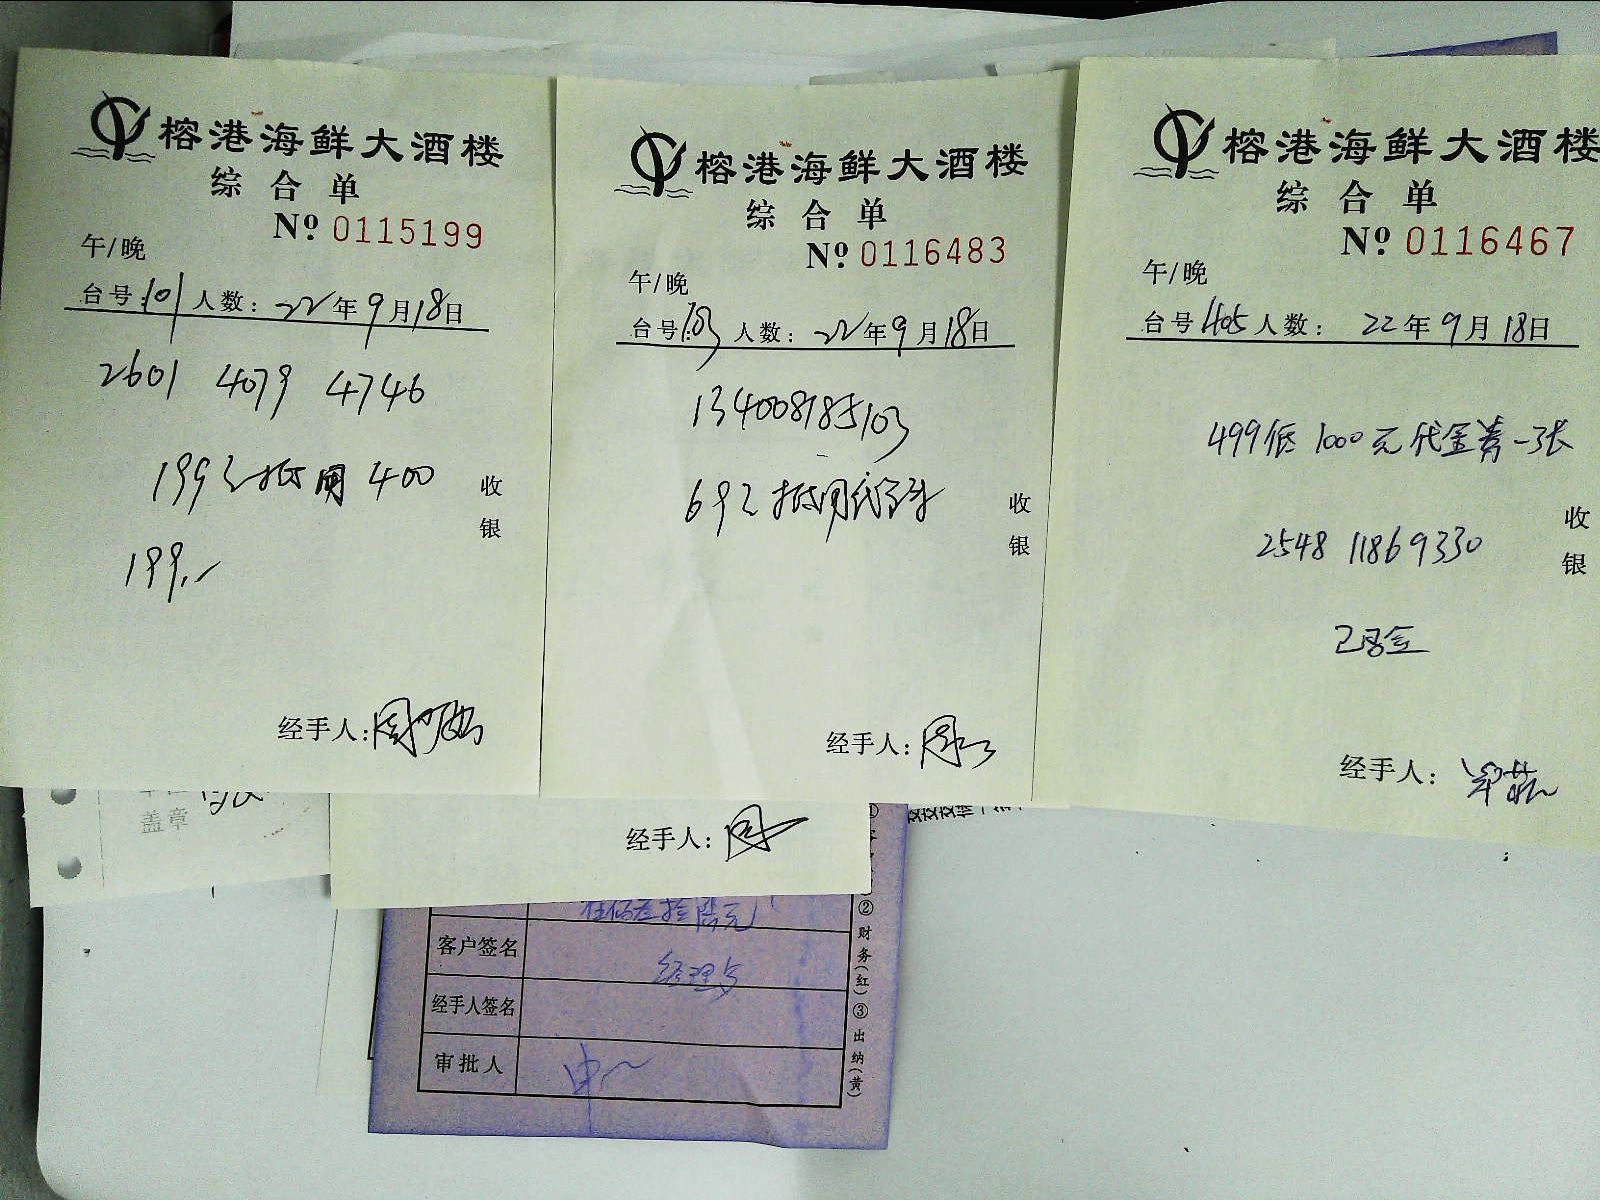 榕港海鲜大酒楼
综合单
Nº 0115199
午/晚
台号:101 人数: 22年9月18日
2601 4079 4746
199元抵用400
199.-
收银
经手人:周
榕港海鲜大酒楼
综合单
Nº 0116483
午/晚
台号:103 人数: 22年9月18日
134008185103
69元抵用代金券
收银
经手人:周
榕港海鲜大酒楼
综合单
Nº 0116467
午/晚
台号:1405 人数: 22年9月18日
499低1000元代金券一张
2548 11869330
已验
收银
经手人:
盖章
经手人:周
客户签名
经理
经手人签名
审批人
②财务(红)③出纳(黄)